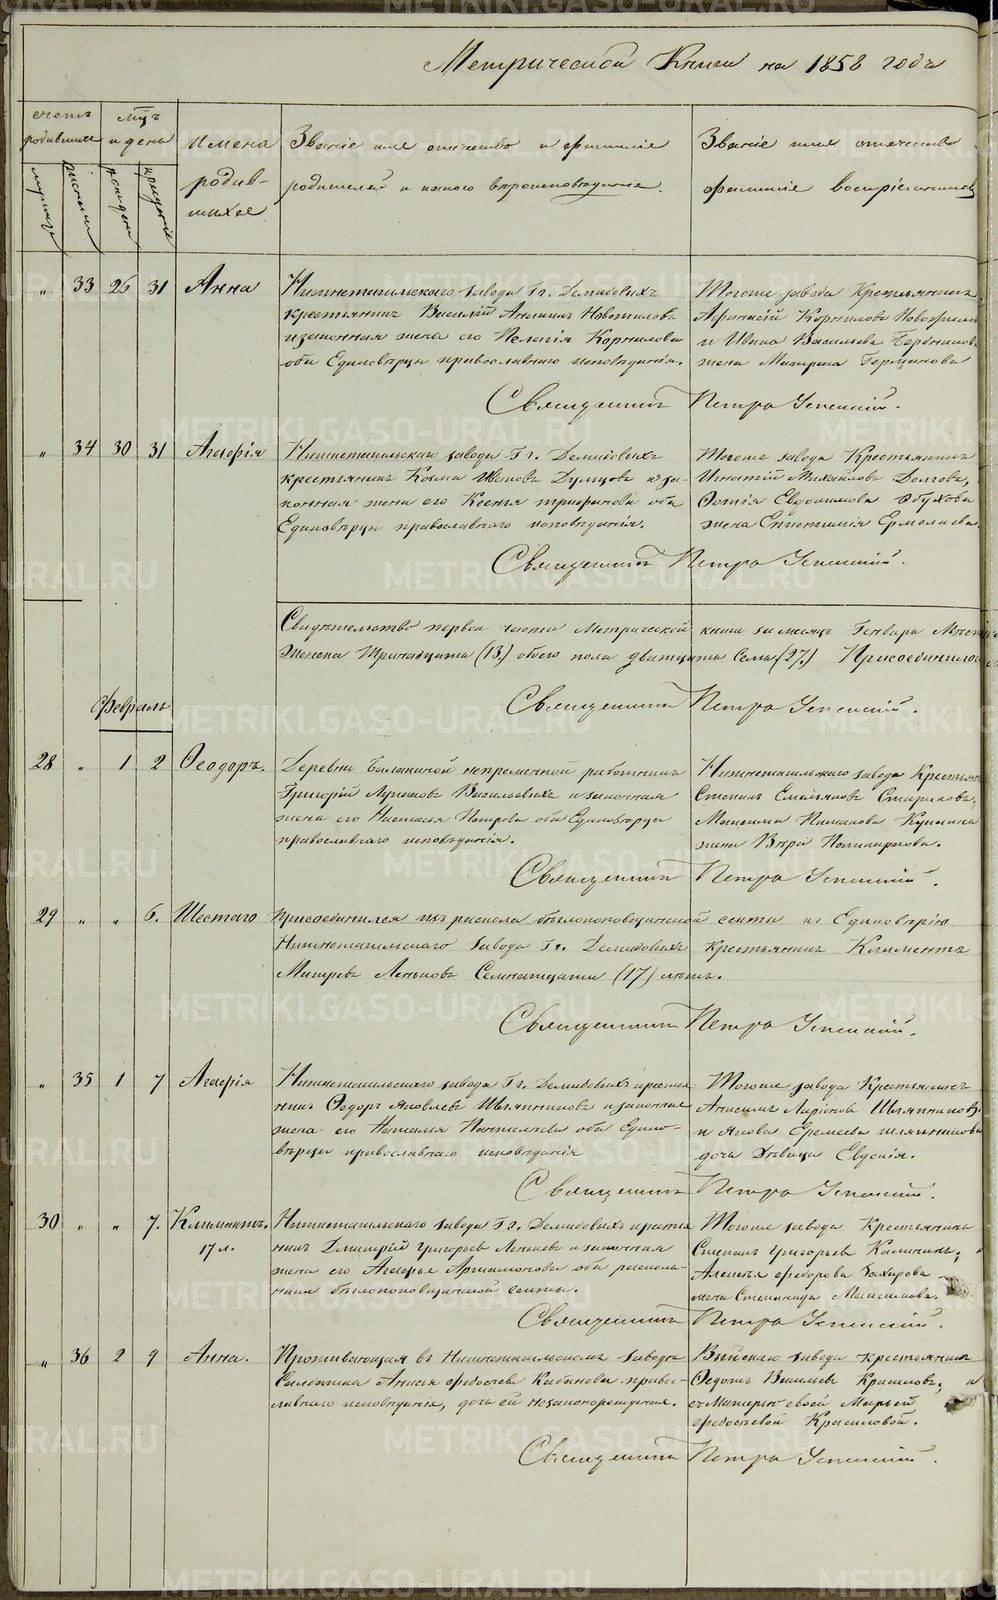 Метрической Книги на 1858 годъ
счетъ родившихся
мужск. женск.
мцъ и день
рожденія крещенія
имена родив-
шихся
Званіе имя отечество и фамилія
родителей и какого вѣроисповѣданія.
Званіе имя отечество
фамилія воспріемниковъ
" 33 26 31 Анна
Нижнетагильскаго завода Гг. Демидовыхъ
крестьянинъ Василій
и законная жена его Пелагія Корнилова
оба Единовѣрцы православнаго исповѣданія.
Тогоже завода Крестьянинъ
Афонасій Корниловъ
и Ивана Васильева
жена Матрена
Священникъ Петръ Успенскій.
" 34 30 31 Агафія
Нижнетагильскаго завода Гг. Демидовыхъ
крестьянинъ Козма Ивановъ и за-
конная жена его Ксенья Трифонова оба
Единовѣрцы православнаго исповѣданія.
Тогоже завода Крестьянинъ
Игнатій Михайловъ Долговъ,
Евдокимова Обухова
жена Епистимія Ермолаева
Священникъ Петръ Успенскій.
Свидѣтельство первой части Метрической книги за месяцъ Генварь
Женска Тринадцать (13.) обоего пола двадцать семь (27.) Присоединилось
Священникъ Петръ Успенскій.
Февраль
28 " 1 2 Ѳеодоръ.
Деревни Балакиной непременной работникъ
Григорій Васильевыхъ и законная
жена его Настасья Петрова оба Единовѣрцы
православнаго исповѣданія.
Нижнетагильскаго завода Крестьян
Степанъ Емельяновъ Стариковъ,
Максима
жена Вѣра
Священникъ Петръ Успенскій.
29 " " 6. Шестаго
присоединился изъ раскола бѣглопоповщинской секты къ Единовѣрію
Нижнетагильскаго завода Гг. Демидовыхъ крестьянинъ Климентъ
Митревъ Леньковъ Семнатцати (17) лѣтъ.
Священникъ Петръ Успенскій.
" 35 1 7 Агафія
Нижнетагильскаго завода Гг. Демидовыхъ кресть-
нинъ Ѳедоръ Яковлевъ Шляпниковъ и законная
жена его Наталья Пантелѣева оба Едино-
вѣрцы православнаго исповѣданія
Тогоже завода Крестьянинъ
Анисимъ Ларіоновъ Шляпниковъ
и Якова Еремеева Шляпникова
дочь дѣвица Евдокія.
Священникъ Петръ Успенскій.
30 " " 7. Климентъ.
17 л.
Нижнетагильскаго завода Гг. Демидовыхъ кресть-
нинъ Дмитрій Григорьевъ Леньковъ и законная
жена его Агафья Артамонова оба расколь-
ники бѣглопоповщинской секты.
Тогоже завода Крестьянинъ
Степанъ Григорьевъ Калининъ,
Алексѣя Федорова Захарова
жена Степанида Максимова.
Священникъ Петръ Успенскій.
" 36 2 9 Анна.
Проживающая въ Нижнетагильскомъ заводѣ
Солдатка Анисья Федосѣева Кабанова право-
славнаго исповѣданія, дочь ей незаконорожденная.
Выйскаго завода крестьянинъ
Ѳедотъ Васильевъ Красиловъ, и
съ Матерью своей Марьей
Федосѣевой Красиловой.
Священникъ Петръ Успенскій.
METRIKI.GASO-URAL.RU